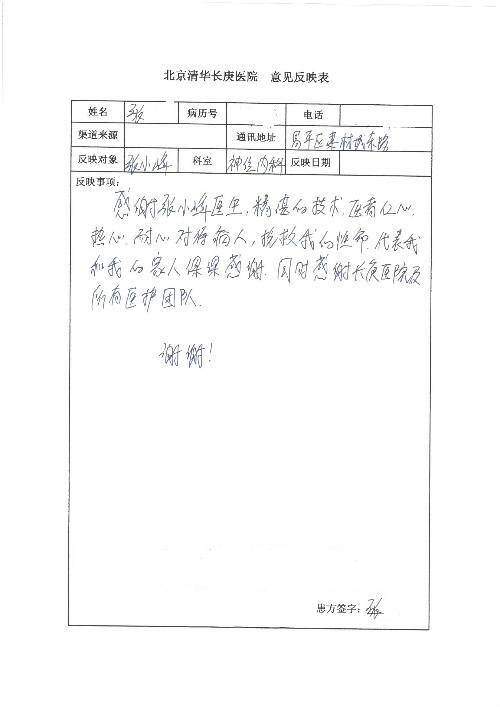 北京清华长庚医院 意见反映表
姓名 张 病历号 电话
渠道来源 通讯地址 昌平区 东路
反映对象 张小 科室 神经内科 反映日期
反映事项:
感谢张小 医生,精湛的技术,医者仁心,
热心、耐心对待病人,挽救我的性命,代表我
和我的家人深深感谢.同时感谢长庚医院及
所有医护团队.
谢谢!
患方签字:张